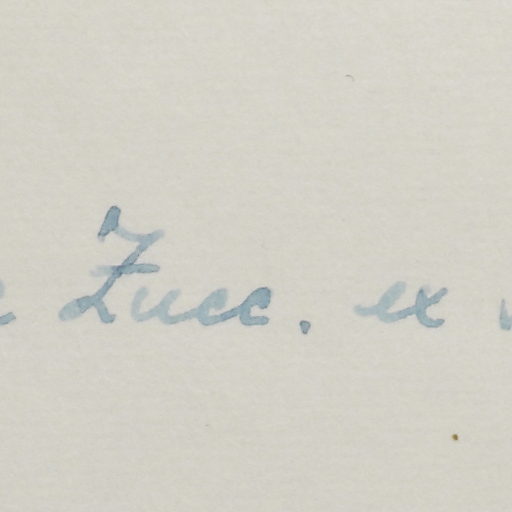 Zucc. ex